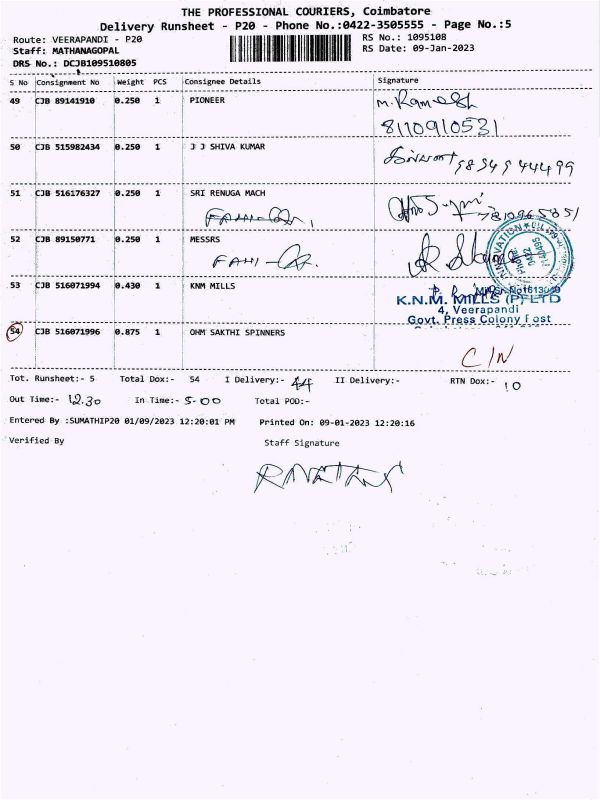 THE PROFESSIONAL COURIERS, Coimbatore
Delivery Runsheet - P20 - Phone No.:0422-3505555 - Page No.:5
Route: VEERAPANDI - P20 RS No.: 1095108
Staff: MATHANAGOPAL RS Date: 09-Jan-2023
DRS No.: DCJB109510805
S No Consignment No Weight PCS Consignee Details Signature
49 CJB 89141910 0.250 1 PIONEER M. Ramesh
8110910531
50 CJB 515982434 0.250 1 J J SHIVA KUMAR
51 CJB 516176327 0.250 1 SRI RENUGA MACH
52 CJB 89150771 0.250 1 MESSRS
53 CJB 516071994 0.430 1 KNM MILLS
K.N.M. MILLS (P) LTD
4, Veerapandi
Govt. Press Colony Post
54 CJB 516071996 0.875 1 OHM SAKTHI SPINNERS
C/N
Tot. Runsheet:- 5 Total Dox:- 54 I Delivery:- 44 II Delivery:- RTN Dox:- 10
Out Time:- 12.30 In Time:- 5.00 Total POD:-
Entered By :SUMATHIP20 01/09/2023 12:20:01 PM Printed On: 09-01-2023 12:20:16
Verified By Staff Signature